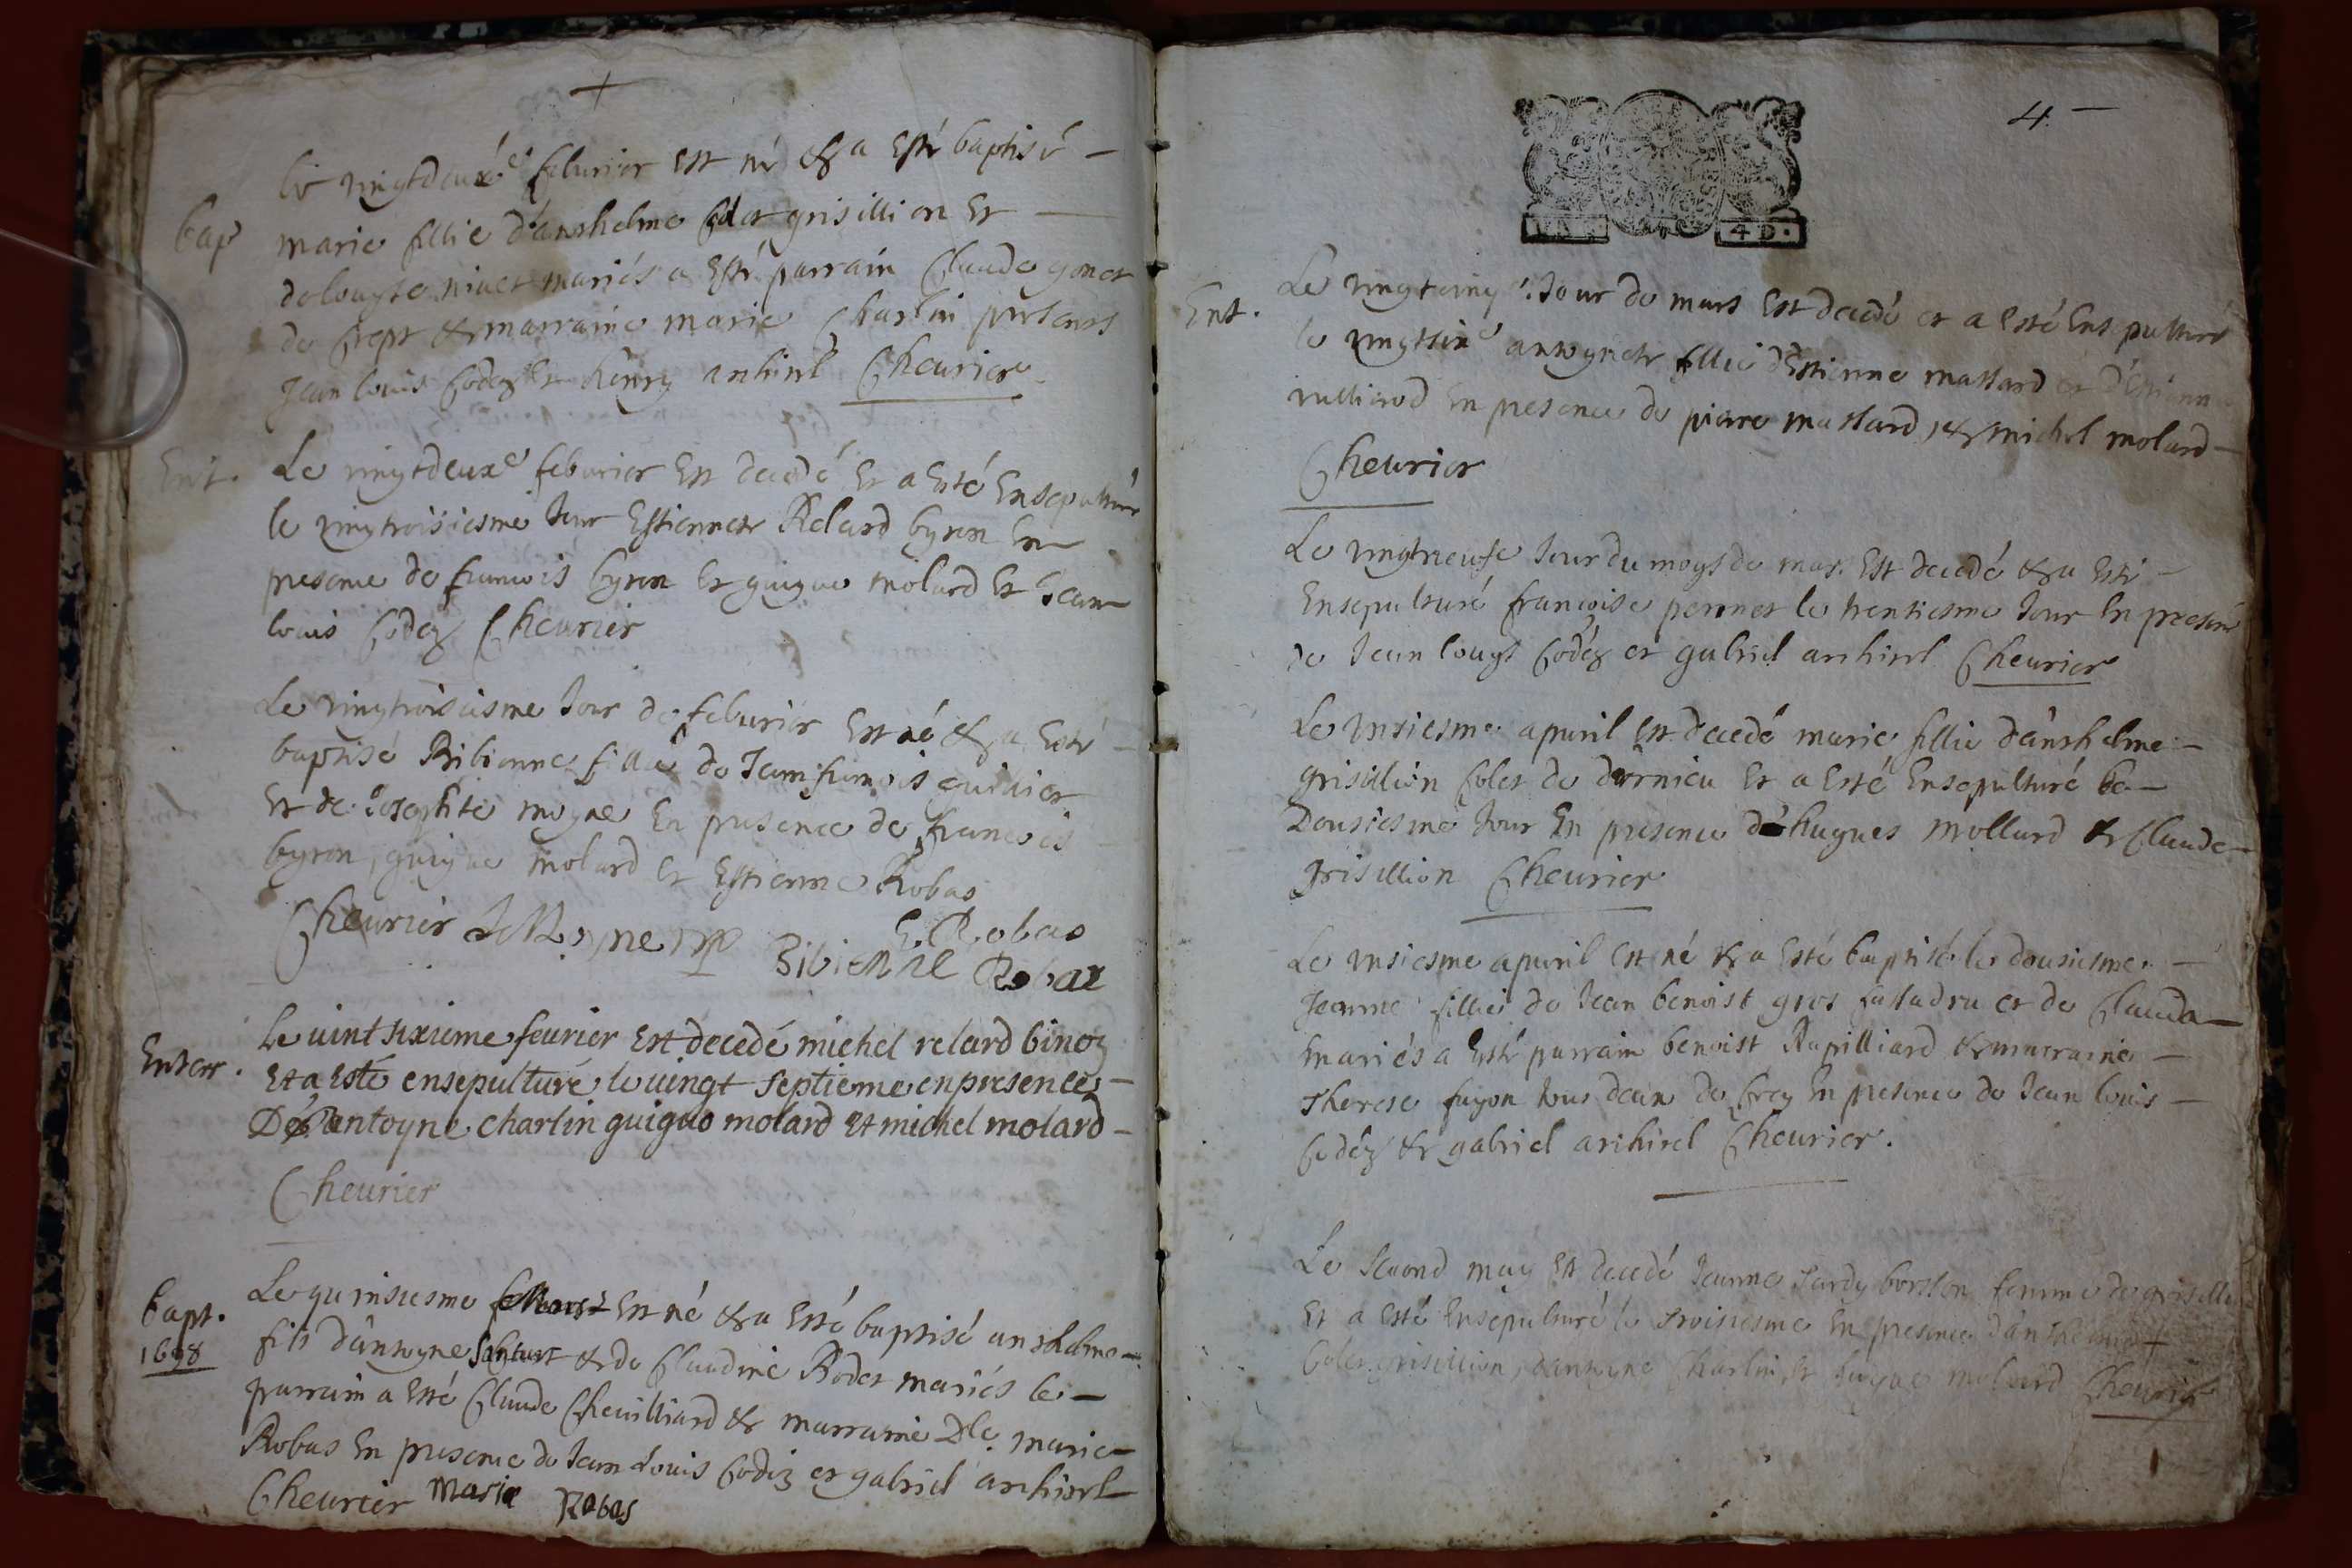 Le vingtdeux.e feburier est né & a esté baptisé
Bap marie fillie d'anthelme Colet grisillion et
de louyse niuet mariés a esté parrain Claude gonet
de Crept & marraine marie Charlin presents
Jean louis Codez et henry Cheurier
Ent. Le vingtdeux.e feburier est decedé et a esté ensepulturé
le vingtroisiesme Jour Estiennete Relard byron en
presence de francois byron et guigue molard et Jean
louis Codez Cheurier
Le vingtroisiesme Jour de feburier est né & a esté
baptisé Bibienne fillie de Jean francois cuillier
et de Josephte moyne en presence de francois
byron, guigue molard et Estienne Robas
Cheurier J Moyne E. Robas
Bibienne Robax
Enterr. Le uint sixieme feurier est decedé michel relard binoz
et a esté ensepulturé le uingt septieme en presence
De antoyne charlin guiguo molard et michel molard
Cheurier
Bapt. Le quinsiesme Mars est né & a esté baptisé anthelme
1698 fils d'antoyne & de Claudine Rodet mariés le
parrain a esté Claude Cheuilliard & marraine Dle. marie
Robas en presence de Jean Louis Codez et gabriel
Cheurier Marie Robas
4
4 D.
Ent. Le vingtcinq.e Jour de mars est decedé et a esté ensepulturé
le vingtsix.e antoynete fillie d'Estienne massard et d'Estienn
vullierod en presence de pierre massard, & michel molard
Cheurier
Le vingtneufe Jour du moys de mars est decedé & a esté
ensepulturé françoise pernet le trentiesme Jour en presence
de Jean louys Codéz et gabriel Cheurier
Le unsiesme apuril est decedé marie fillie d'anthelme
grisillion Colet de dornieu et a esté ensepulturé le
Dousiesme Jour en presence de hugues mollard & Claude
grisillion Cheurier
Le unsiesme apuril est né & a esté baptisé le dousiesme
Jeanne fillie de Jean benoist gros et de Clauda
mariés a esté parrain benoist Rapilliard & marraine
Therese fayon tous deux de Crey en presence de Jean louis
Codéz & gabriel Cheurier.
Le second may est decedé Jeanne Tardy femme de
et a esté ensepulturé le troisiesme en presence d'anthelme
Colet grisillion, d'antoyne Charlin, et guigue molard Cheurier